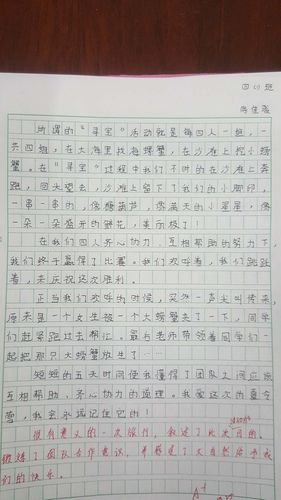 四(1)班
所谓的“寻宝”活动就是每四人一班，一
共四班，在大海里找海螺蟹，在沙滩上挖小螃
蟹。在“寻宝”过程中我们不时的在沙滩上奔
跑，回头望去，沙滩上留下了我们的小脚印，
一串一串的，像糖葫芦，像满天的小星星，像
一朵一朵盛开的鲜花，美丽极了！
在我们四人齐心协力、互相帮助的努力下，
我们终于赢得了比赛。我们欢呼着，我们跳跃
着，来庆祝这次胜利。
正当我们欢呼的时候，突然一声尖叫传来，
原来是一个女生被一个大螃蟹夹了一下，同学
们赶紧跑过去帮忙。最后老师带领着同学们一
起把那只大螃蟹放生了……
短短的五天时间使我懂得了团队之间应该
互相帮助，齐心协力的道理。我爱这次的夏令
营，我会永远记住它的！
很有意义的一次旅行，叙述了此次目的。
锻炼了团队合作意识，并感受了大自然给予我
们的快乐。
A+